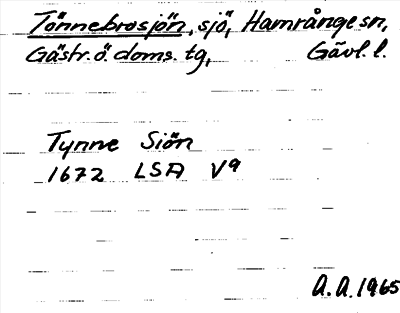 Tönnebrosjön, sjö, Hamrånge sn,
Gästr. ö. doms. tg, Gävl. l.
Tynne Siön
1672 LSA V9
A.A. 1965